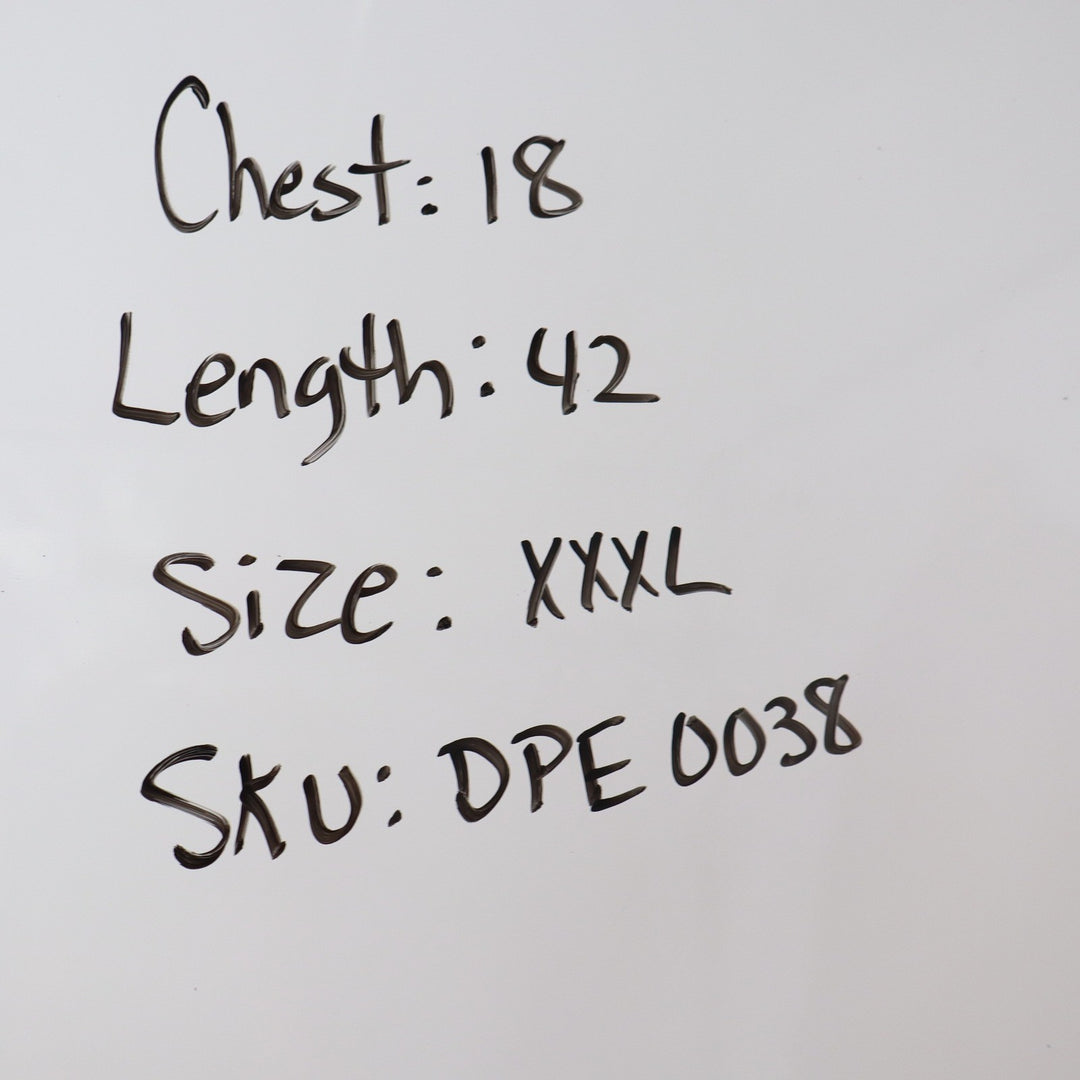 Chest: 18
Length: 42
Size: XXXL
SKU: DPE 0038